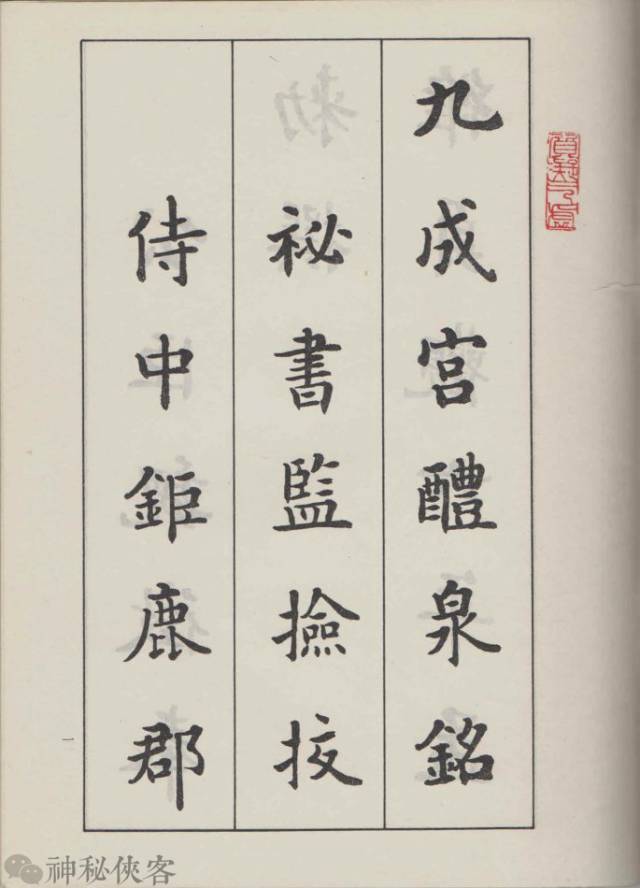 九成宮醴泉銘
祕書監撿挍
侍中鉅鹿郡
一
神秘俠客